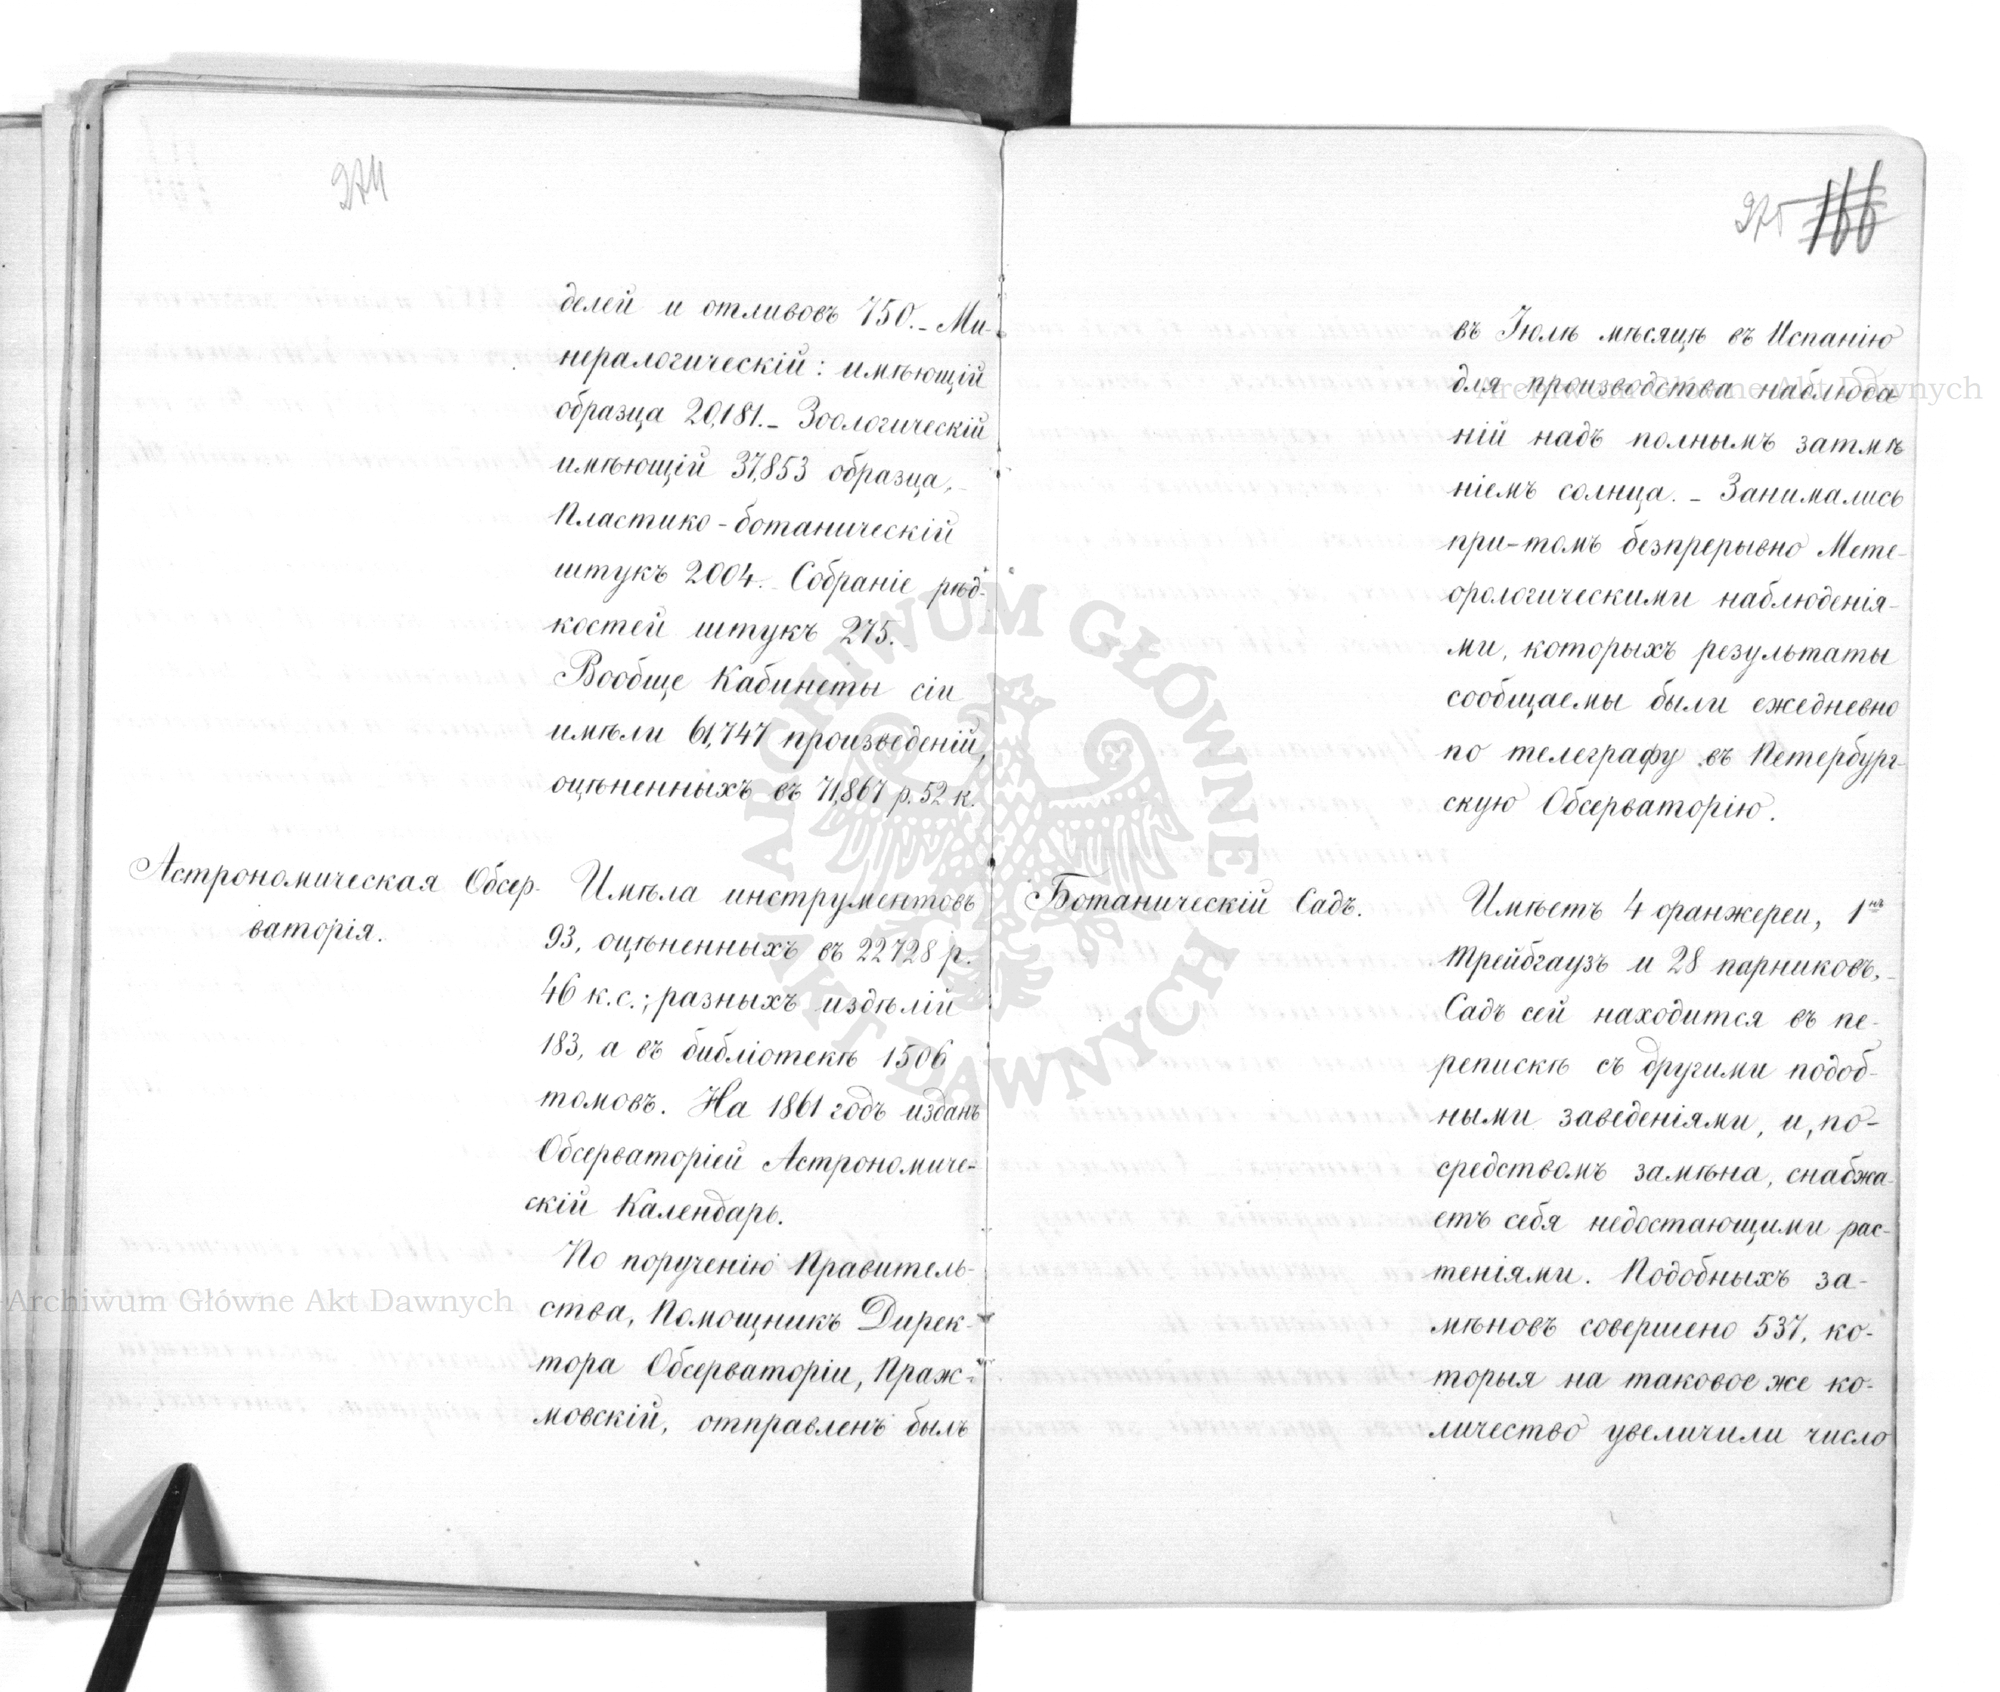 274
делей и отливовъ 750. – Ми-
нералогическій: имѣющій
образца 20,181. – Зоологическій
имѣющій 37,853 образца, –
Пластико-ботаническій
штукъ 2004. – Собраніе рѣд-
костей штукъ 275. –
Вообще Кабинеты сіи
имѣли 61,747 произведеній,
оцѣненныхъ въ 71,867 р. 52 к.
Астрономическая Обсер-
ваторія.
Имѣла инструментовъ
93, оцѣненныхъ въ 22728 р.
46 к. с.; разныхъ издѣлій
183, а въ библіотекѣ 1506
томовъ. На 1861 годъ изданъ
Обсерваторіей Астрономиче-
скій Календарь.
По порученію Правитель-
ства, Помощникъ Дирек-
тора Обсерваторіи, Праж-
мовскій, отправленъ былъ
275 166
въ Іюлѣ мѣсяцѣ въ Испанію
для производства наблюда
ній надъ полнымъ затмѣ
ніемъ солнца. – Занимались
при-томъ безпрерывно Мете-
орологическими наблюденія-
ми, которыхъ результаты
сообщаемы были ежедневно
по телеграфу въ Петербург-
скую Обсерваторію.
Ботаническій Садъ.
Имѣетъ 4 оранжереи, 1нъ
трейбгаузъ и 28 парниковъ, –
Садъ сей находится въ пе-
репискѣ съ другими подоб-
ными заведеніями, и, по-
средствомъ замѣна, снабжа-
етъ себя недостающими рас-
теніями. Подобныхъ за-
мѣновъ совершено 537, ко-
торыя на таковое же ко-
личество увеличили число
Archiwum Główne Akt Dawnych
Archiwum Główne Akt Dawnych
ARCHIWUM GŁÓWNE AKT DAWNYCH